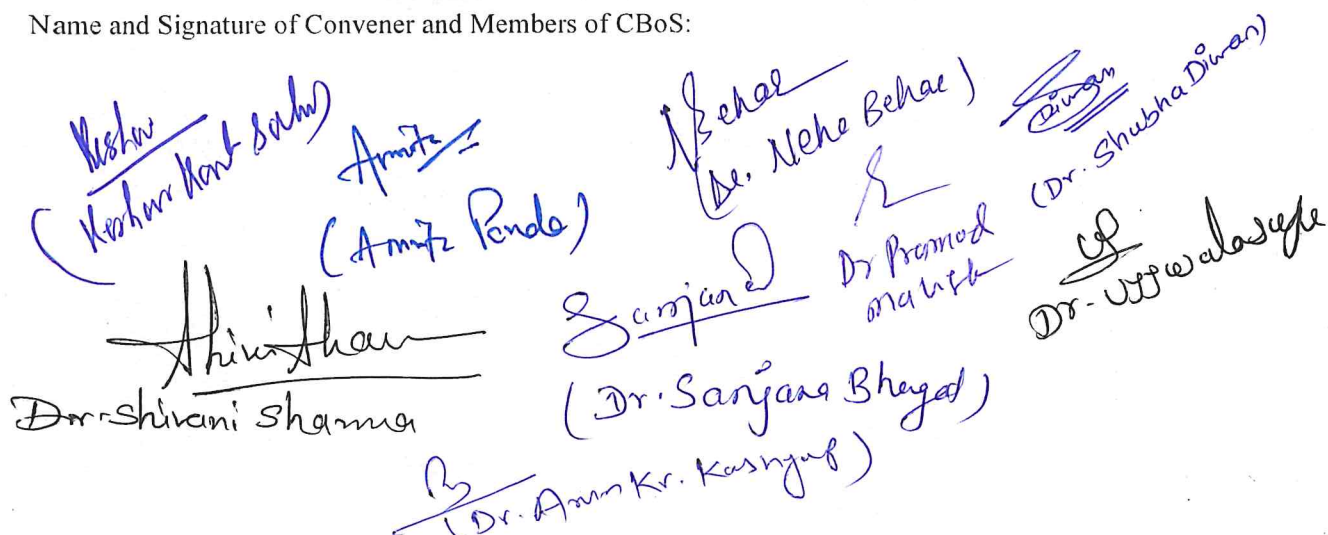 Name and Signature of Convener and Members of CBoS:
Keshav
(Keshav Kant Sahu)
Amita
(Amita Panda)
NBehar
(Dr. Neha Behar)
Diwan
(Dr. Shubha Diwan)
Dr Pramod
Mahish
Dr. Ujjwala
Dr. Shivani Sharma
Sanjana
(Dr. Sanjana Bhagat)
(Dr. Arun Kr. Kashyap)